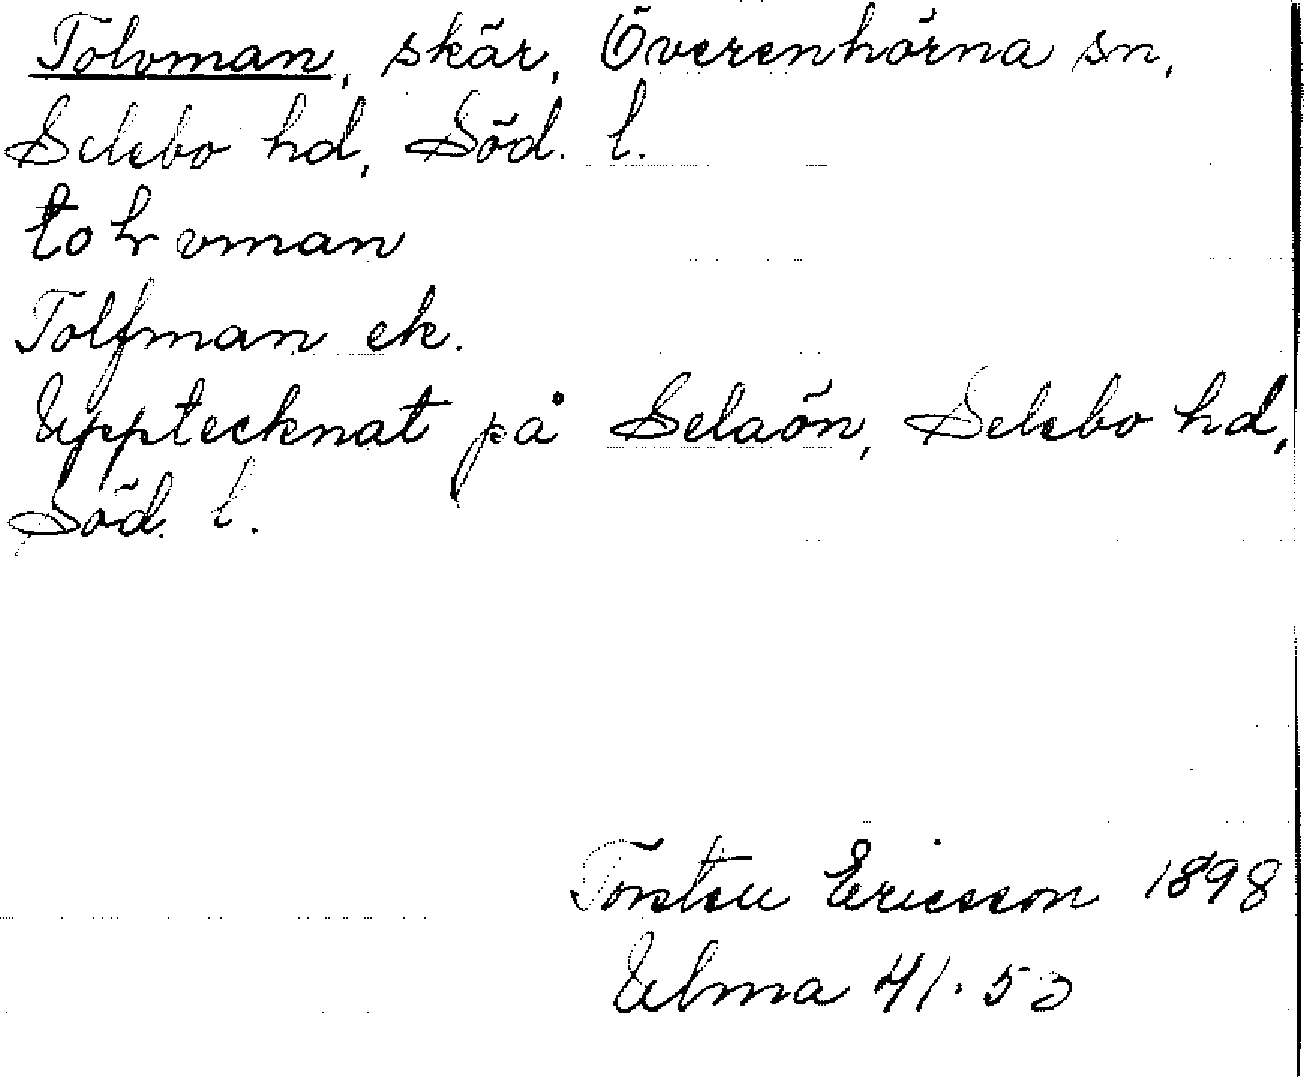 Tolvman, skär, Överenhörna sn,
Selebo hd, Söd. l.
Tolfman ek.
Upptecknat på Selaön, Selebo hd,
Söd. l.
Torsten Ericsson 1898
Ulma 41.53